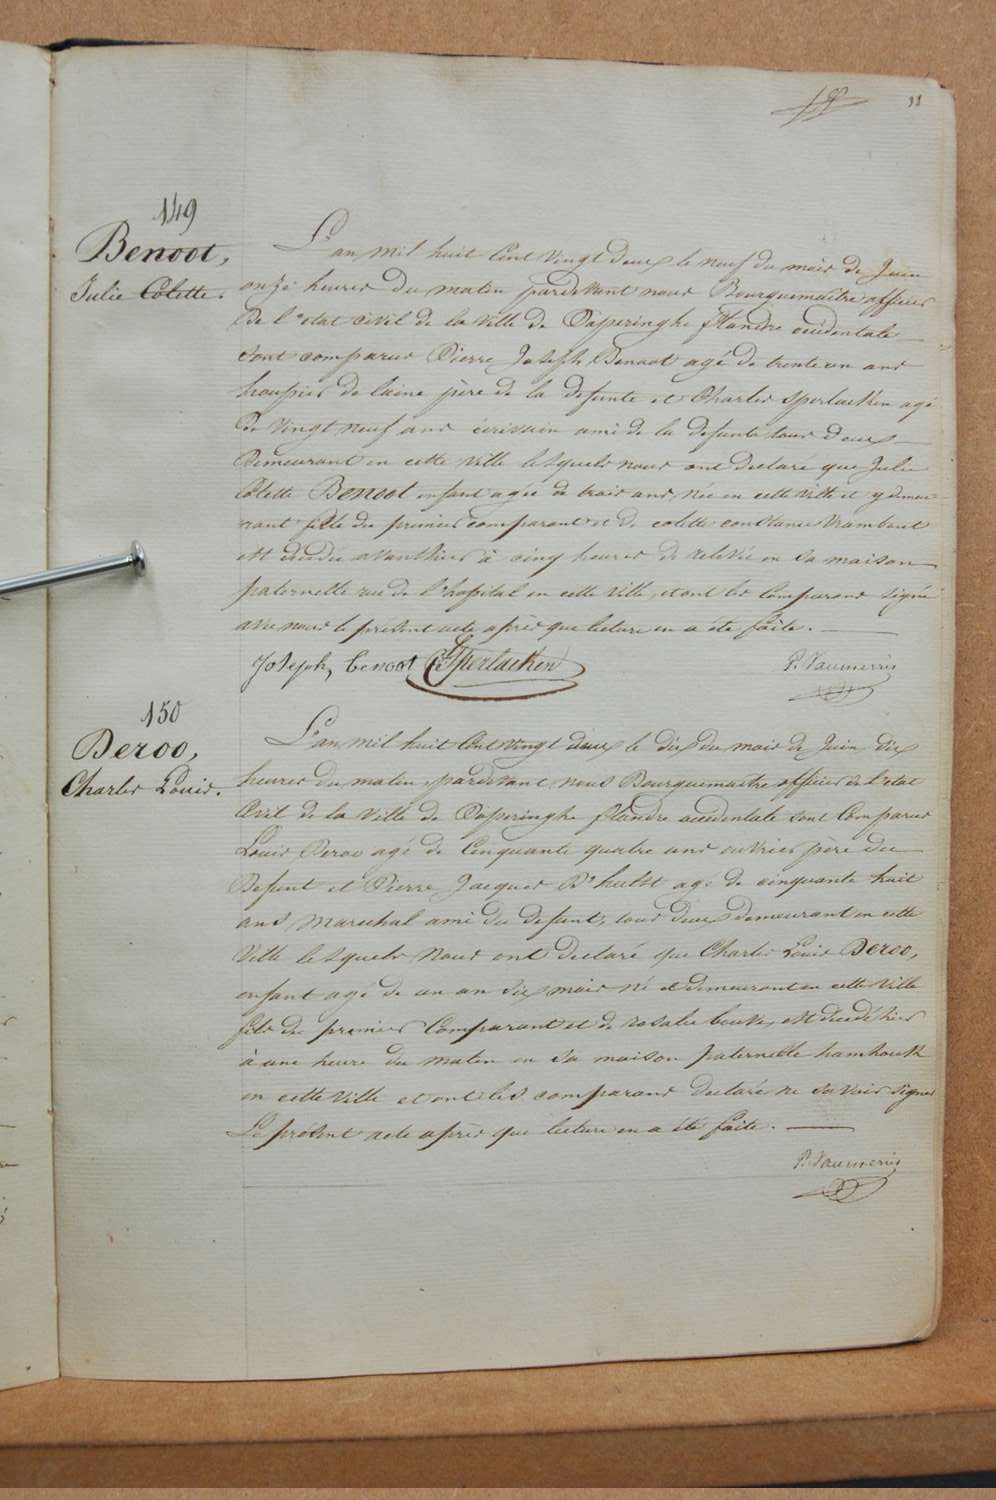 11
149
Benoot,
Julie Colette.
L'an mil huit Cent vingt deux le neuf du mois de Juin
onze heures du matin pardevant nous Bourguemaitre officier
De l'etat civil de la ville de Poperinghe flandre occidentale
sont comparus Pierre Joseph Benoot agé de trente un ans
houpier de laine père de la defunte et Charles Sperlaeken agé
de vingt neuf ans écrivain ami de la defunte tous deux
Demeurant en cette ville lesquels nous ont declaré que Julie
Colette Benoot enfant agée de trois ans née en cette ville et y demeu-
rant fille du premier comparant et de colette constance Vrambout
est decedée avanthier à cinq heures de relevée en sa maison
paternelle rue de l'hopital en cette ville, et ont les Comparans signé
avec nous le présent acte après que lecture en a été faite.
Joseph, benoot C Sperlaeken P. Vanmerris
150
Deroo,
Charles Louis.
L'an mil huit Cent vingt deux le dix du mois de Juin dix
heures du matin, pardevant nous Bourguemaitre officier de l'etat
Civil de la ville de Poperinghe flandre occidentale sont Comparus
Louis Deroo agé de Cinquante quatre ans ouvrier père du
Defunt et Pierre Jacques D'hulst agé de cinquante huit
ans Marechal ami du defunt, tous deux demeurant en cette
Ville lesquels Nous ont declaré que Charles Louis Deroo,
enfant agé de un an dix mois né et demeurant en cette Ville
fils du premier Comparant et de rosalie est decedé hier
à une heure du matin en sa maison paternelle hamhoek
en cette Ville et ont les comparans declaré ne savoir signer
Le présent acte après que lecture en a été faite.
P. Vanmerris